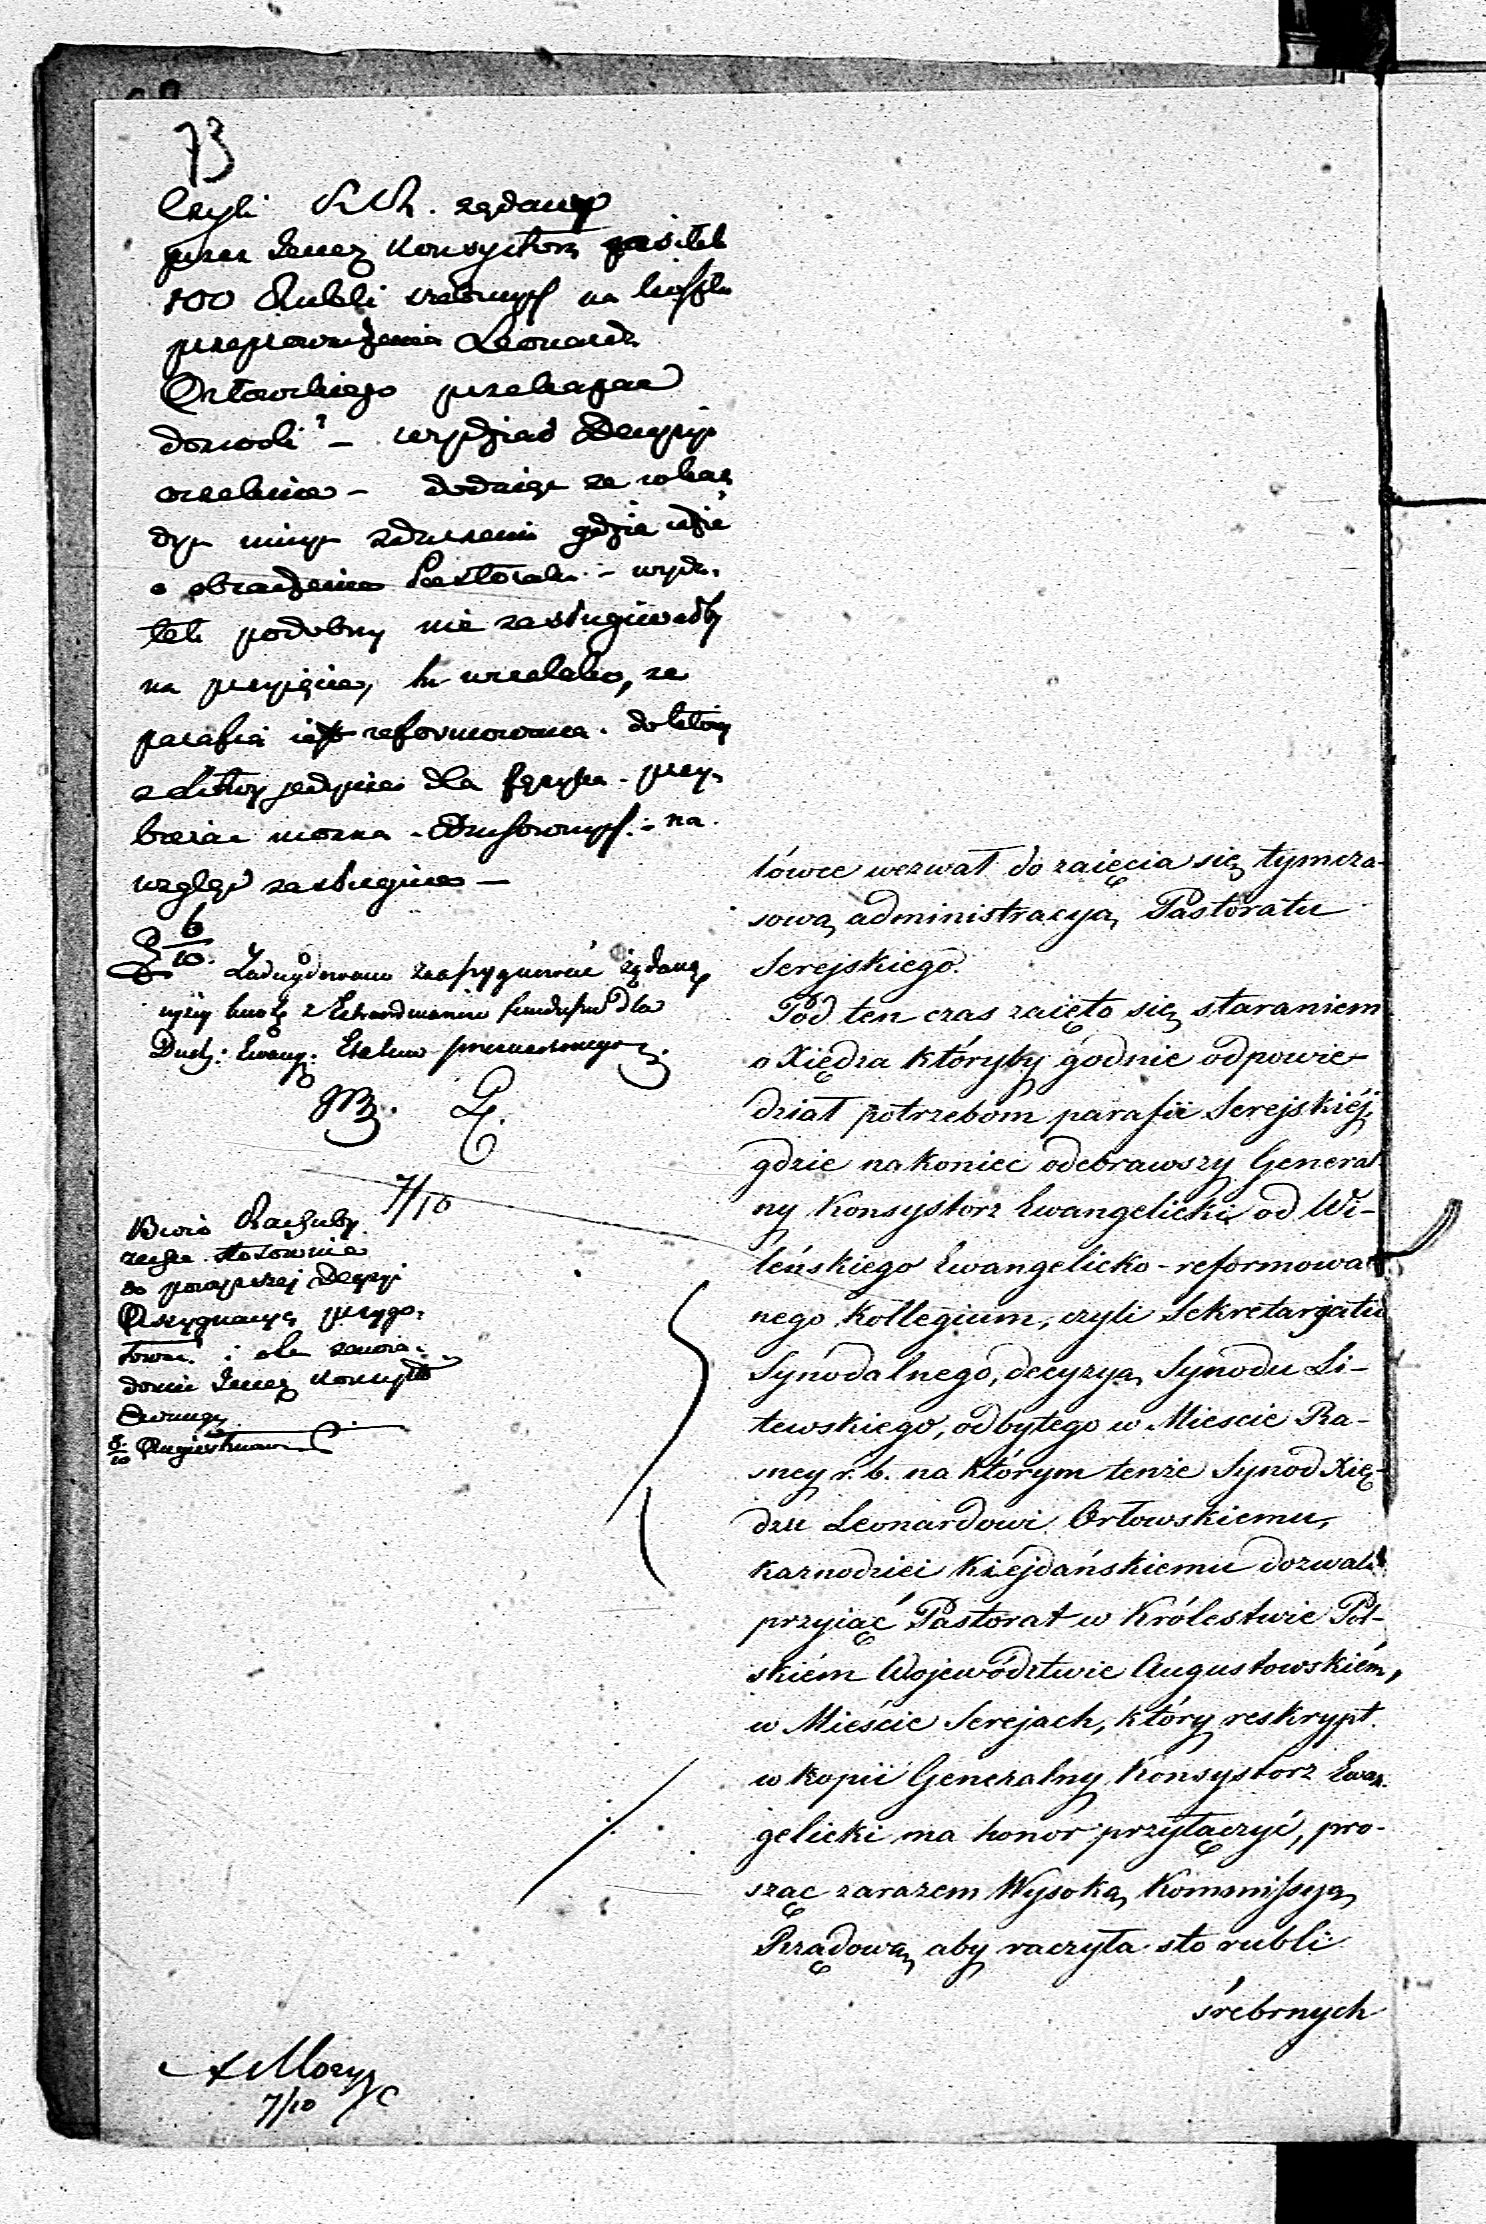 73
Czyli K.R. żądany
przez Jener. Konsystorz zasiłek
100 Rubli srebrnych na koszta
przeprowadzenia Leonarda
Orłowskiego przekazać
dozwoli? –
oczekuie – dodaięc ze
gdzie idzie
o obsadzenie Pastorału –
tek podobny nie zasługiwałby
na przyięcie, tu wszakże, ze
parafia iest reformowana. do któréj
z Litwy jedynie dla języka przy-
bierać można Duchownych. – na
wzgląd zasługuie –
6/10.
Zadecydowano zaassygnować żądaną
wyżéj kwotę z funduszu dla
Duch: Ewang: przeznaczonego.
7/10
Biuro Rachuby
zechce stosownie
do powyższej Decyzji
Assygnacyę przygo-
tować i o tem zawia-
domić Jener. Konsyst.
Ewang.
8/10
7/10
tówce wezwał do zaięcia się tymcza-
sową administracyą Pastoratu
Serejskiego.
Pod ten czas zaięto się staraniem
o Xiędza któryby godnie odpowie-
dział potrzebom parafii Serejskiéj,
gdzie nakoniec odebrawszy General-
ny Konsystorz Ewangelicki od Wi-
leńskiego Ewangelicko-reformowa-
nego Kollegium, czyli Sekretarjatu
Synodalnego, decyzyą Synodu Li-
tewskiego, odbytego w Miescie
r. b. na którym tenże Synod Xię-
dzu Leonardowi Orłowskiemu,
kaznodziei Kiéjdańskiemu dozwala
przyiąć Pastorat w Królestwie Pol-
skiém Województwie Augustowskiém,
w Mieście Serejach, który reskrypt
w kopii Generalny Konsystorz Ewan-
gelicki ma honor przyłączyć, pro-
sząc zarazem Wysoką Kommissyą
Rządową, aby raczyła sto rubli
śrebrnych